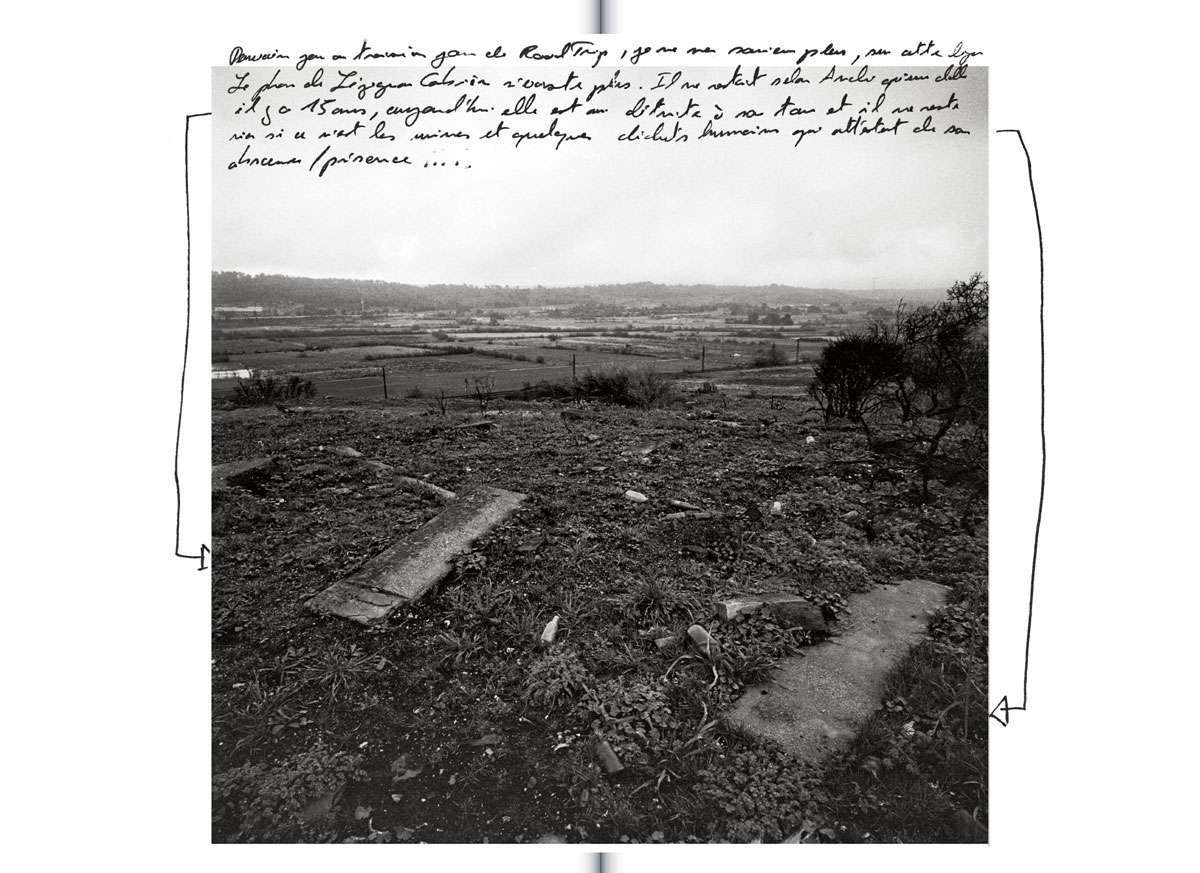 jour ou troisième jour de Road Trip, je ne me souviens plus, sur cette ligne
Le phare de Lézignan Corbière n'existe plus. Il ne restait selon André qu'une dalle
il y a 15 ans, aujourd'hui elle est détruite à son tour et il ne reste
rien si ce n'est les ruines et quelques déchets humains qui attestent de son
absence/présence .....